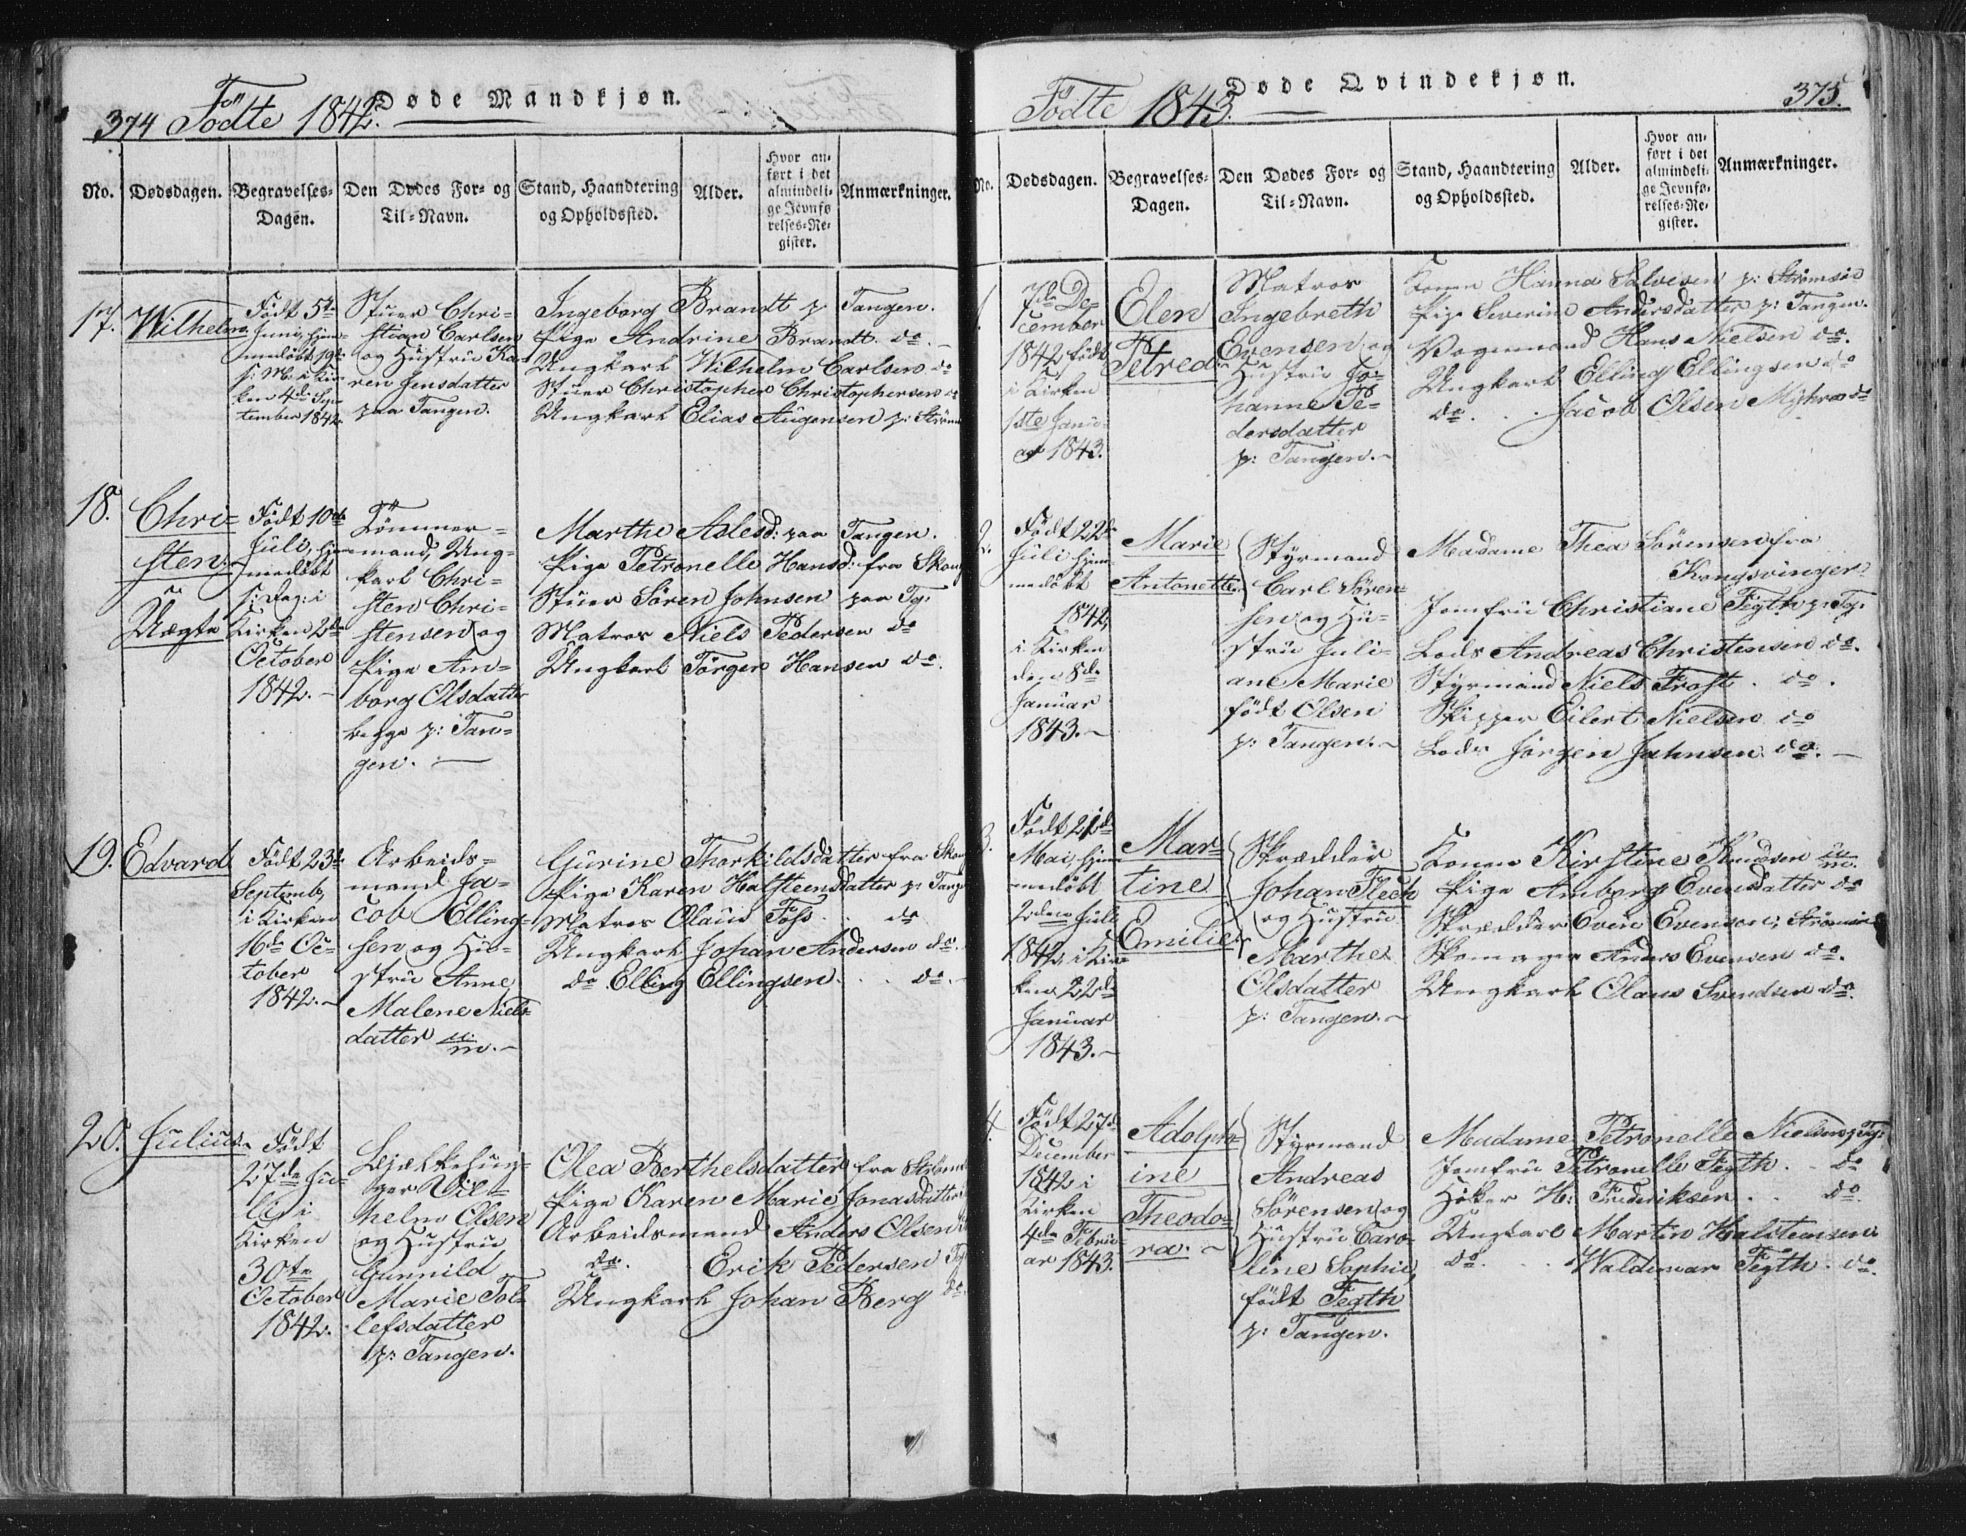 374 Födte 1842.
Døde Mandkjøn.
No.
Dødsdagen.
Begravelses-
Dagen.
Den Dødes For- og
Til-Navn.
Stand, Haandtering
og Opholdssted.
Alder.
Hvor an-
ført i det
almindeli-
ge Jevnfø
relses-Re-
gister.
Anmærkninger.
17. Wilhelm
Födt 5te
Juni, hjem-
medöbt 19de
s: M: i Kir-
ken 4de Sep-
tember 1842.
Stuer Chri-
stian Carlsen
og Hustru Ka-
ren Jensdatter
paa Tangen.
Ingeborg Brandt p: Tangen.
Pige Andrine Brandt do.
Ungkarl Wilhelm Carlsen do
Stuer Christopher Christophersen do
Ungkarl Elias Augensen p:
18. Chri-
sten
Uægte
Födt 10de
Juli, hjem-
medöbt
s: Dag: i
Kirken 2de
October
1842.
Tömmer-
mand, Ung-
karl Chri-
sten Chri-
stensen og
Pige Am-
borg Olsdatter
begge p: Tan-
gen.
Marthe Aslesd: paa Tangen.
Pige Petronelle Hansd: fra
Stuer Sören Johnsen paa Tg:
Matros Niels Pedersen do
Ungkarl Törger Hansen do.
19. Edvard
Födt 23de
Septemb,
i Kirken
16de Oc-
tober
1842.
Arbeids-
mand Ja-
cob Elling-
sen og Hu-
stru Anne
Malene Niels-
datter
Gurine Thorkildsdatter fra
Pige Karen Halsteensdatter p:
Matros Olaus Foss do
Ungkarl Johan Andersen do.
do Elling Ellingsen do.
20. Julius
Födt
27de Ju-
li, i
Kirken
30te
October
1842.
Vil-
helm Olsen
og Hustru
Gunnild
Marie Tol-
lefsdatter
p: Tangen.
Olea Berthelsdatter fra
Pige Karen Marie Jonasdatter
Arbeidsmand Anders Olsen
do. Erik Pedersen Tg
Ungkarl Johan Berg do.
Födte 1843.
Døde Qvindekjøn.
375.
No.
Dødsdagen.
Begravelses-
Dagen.
Den Dødes For- og
Til-Navn.
Stand, Haandtering
og Opholdssted.
Alder.
Hvor an-
ført i det
almindeli-
ge Jevnfø-
relses-Re-
gister.
Anmærkninger.
7de De-
cember
1842 födt
i Kirken
1ste Janu-
ar 1843.
Elen
Petrea
Matros
Ingebreth
Evensen og
Hustru Jo-
hanne Pe-
dersdatter
p: Tangen.
Konen Hanna Salvesen p: Strömsöe
Pige Severine Andersdatter p: Tangen.
Vognmand Hans Nielsen do.
Ungkarl Elling Ellingsen do
do. Jacob Olsen Myhre do
2.
Födt 22de
Juli, hjem-
medöbt
1842,
i Kirken
den 8de
Januar
1843.
Marie
Antonette
Styrmand
Carl Sören-
sen og Hu-
stru Juli-
ane Marie
födt Olsen
p: Tangen.
Madame Thea Sörensen fra
Kongsvinger
Jomfru Christiane Fegth p: Tg:
Lods Andreas Christensen do.
Styrmand Niels Frost do.
Skipper Eilert Nielsen do
Lods Jörgen Jahnsen do.
3.
Födt 21de
Mai, hjem-
medöbt
2den Juli
1842, i Kir-
ken 22de
Januar
1843.
Mar-
tine
Emilie
Skrædder
Johan Flech
og Hustru
Marthe
Olsdatter
p: Tangen.
Konen Kirstine Knudsen
Pige Amborg Evensdatter do
Skrædder Even Evensen,
Skomager Anders Evensen do.
Ungkarl Olaus Svendsen do.
4.
Födt 27de
December
1842 i
Kirken
4de Febru-
ar 1843.
Adolph-
ine
Theodo-
ra.
Styrmand
Andreas
Sörensen og
Hustru Caro-
line Sophie,
födt Fegth
p: Tangen.
Madame Petronelle Nielsen p: Tg:
Jomfru Petronelle Fegth do
Höker H: Frederiksen do.
Ungkarl Martin Halsteinsen
do. Waldemar Fegth do.